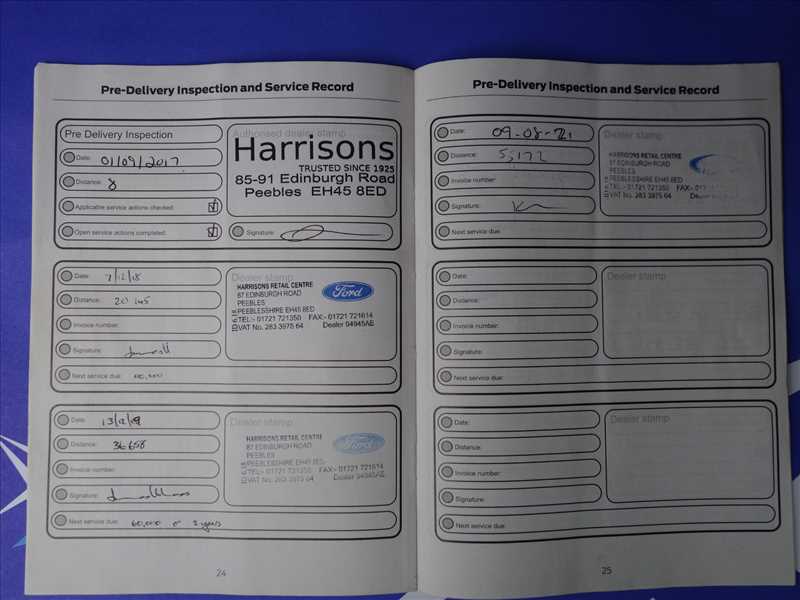 Pre-Delivery Inspection and Service Record
Pre Delivery Inspection
Date: 01/09/2017
Distance: 8
Applicable service actions checked:
Open service actions completed:
Authorised dealer stamp
Harrisons
TRUSTED SINCE 1925
85-91 Edinburgh Road
Peebles EH45 8ED
Signature:
Date: 7/12/18
Distance: 20 145
Invoice number:
Signature:
Next service due: 40,000
Dealer stamp
HARRISONS RETAIL CENTRE
87 EDINBURGH ROAD
PEEBLES
PEEBLESSHIRE EH45 8ED
TEL:- 01721 721350 FAX:- 01721 721614
VAT No. 283 3975 64 Dealer 04945AE
Ford
Date: 13/12/19
Distance: 36658
Invoice number:
Signature:
Next service due: 60,000 or 2 years
Dealer stamp
HARRISONS RETAIL CENTRE
87 EDINBURGH ROAD
PEEBLES
PEEBLESSHIRE EH45 8ED
TEL:- 01721 721350 FAX:- 01721 721614
VAT No. 283 3975 64 Dealer 04945AE
Ford
24
Pre-Delivery Inspection and Service Record
Date: 09-08-21
Distance: 55,172
Invoice number:
Signature:
Next service due:
Dealer stamp
HARRISONS RETAIL CENTRE
87 EDINBURGH ROAD
PEEBLES
PEEBLESSHIRE EH45 8ED
TEL:- 01721 721350 FAX:-
VAT No. 283 3975 64
Date:
Distance:
Invoice number:
Signature:
Next service due:
Dealer stamp
Date:
Distance:
Invoice number:
Signature:
Next service due:
Dealer stamp
25